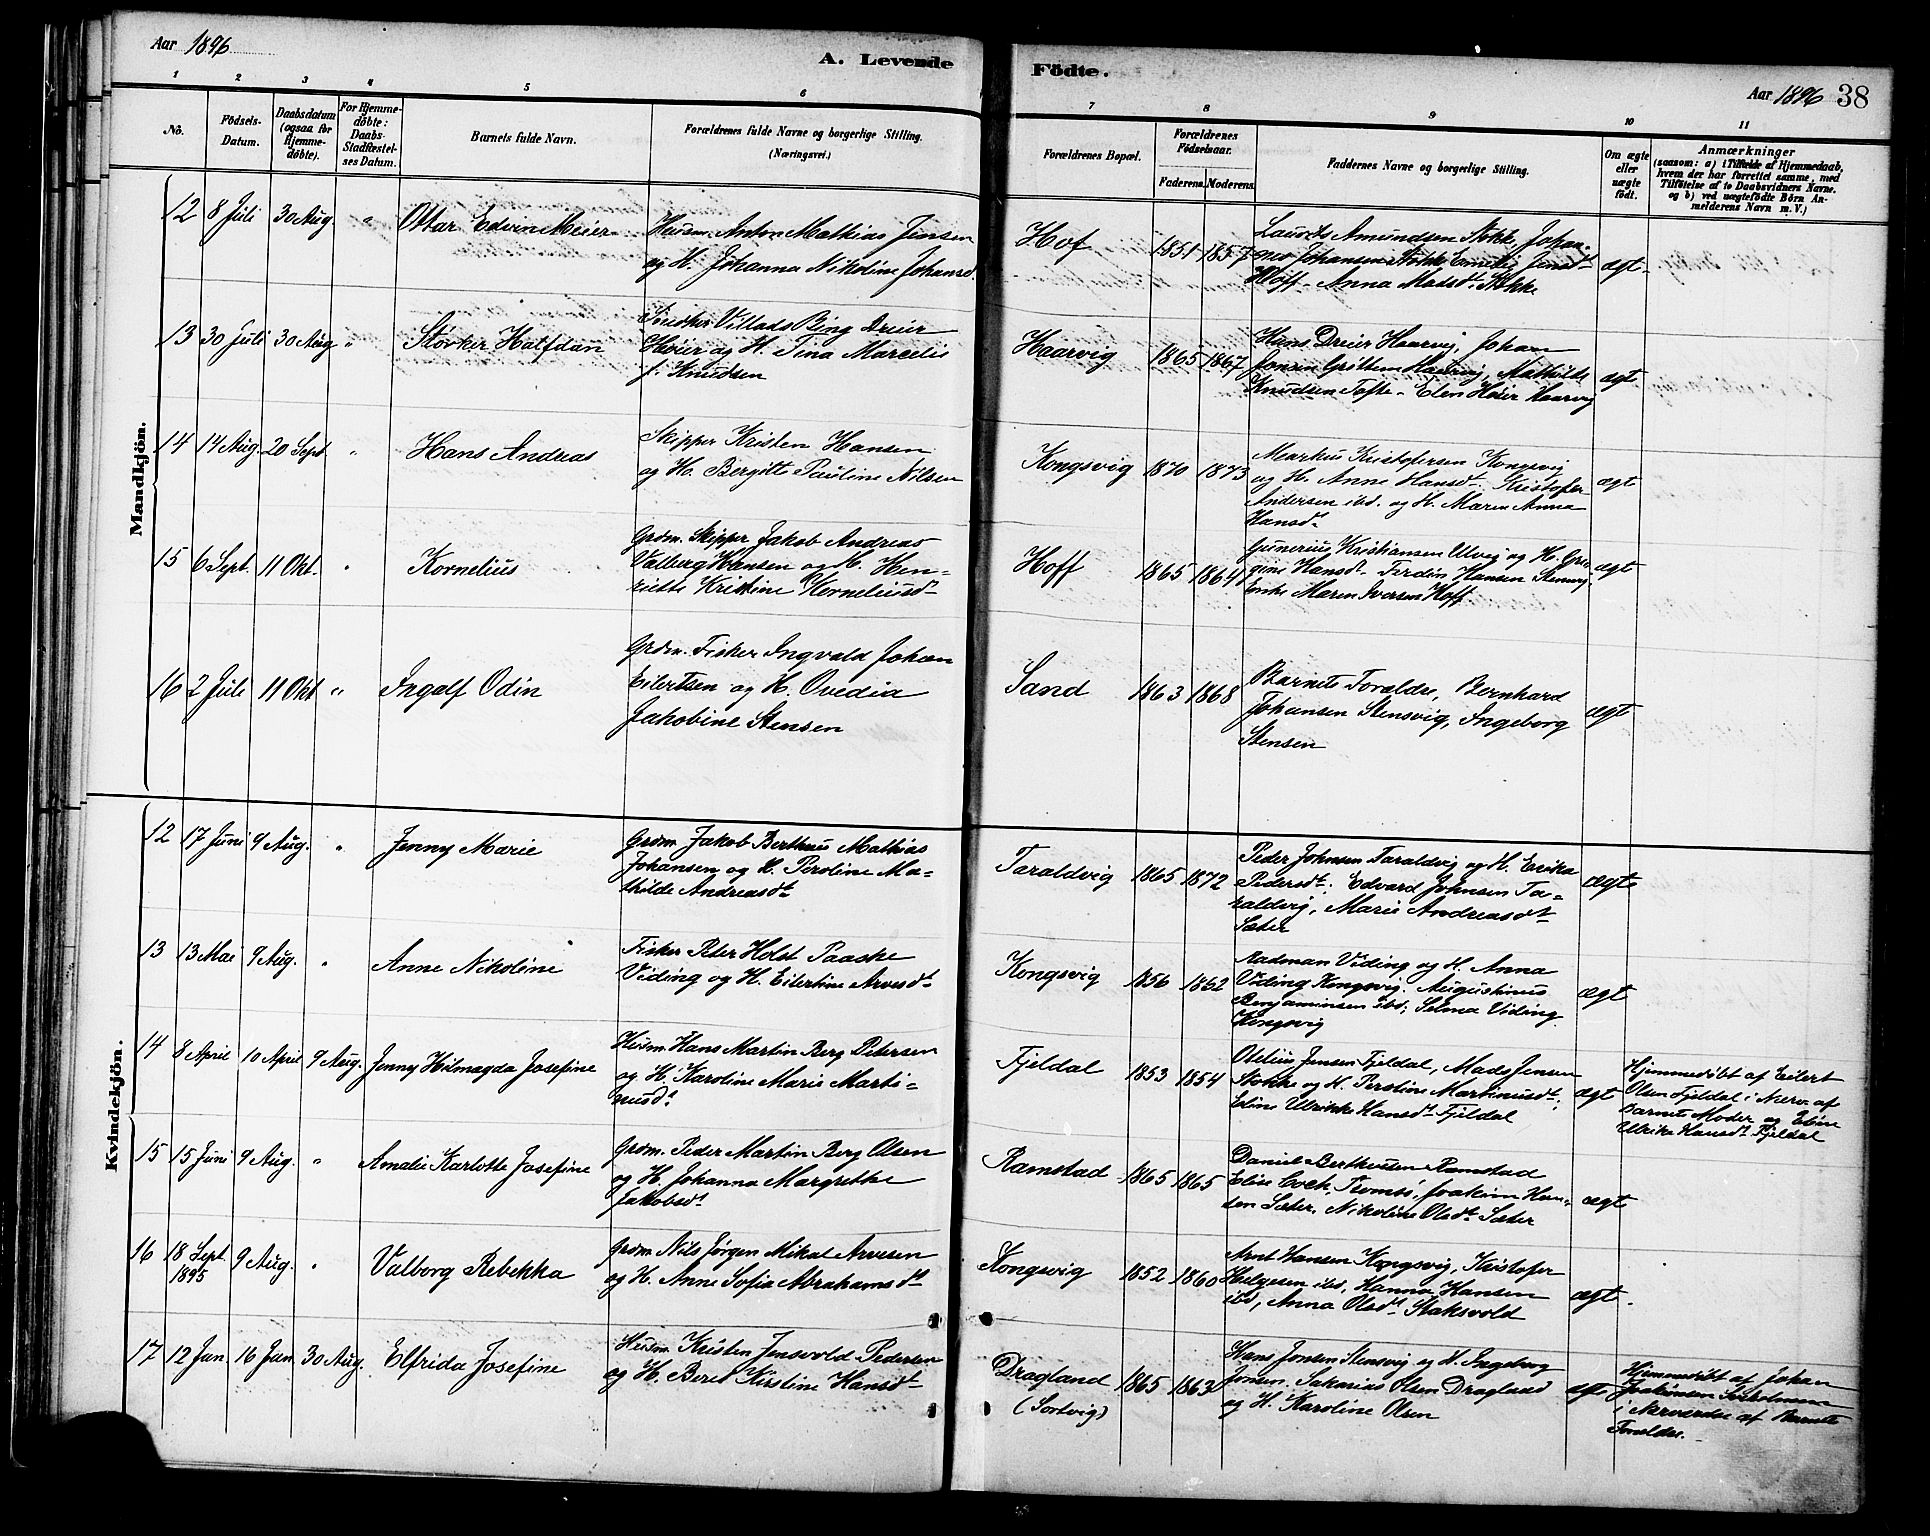 Aar 1896
A. Levende
Födte.
Aar 1896 38
1 2 3 4 5 6 7 8 9 10 11
No.
Födsels-
Datum.
Daabsdatum
(ogsaa for
Hjemme-
döbte).
For Hjemme-
döbte:
Daabs-
Stadfæstel-
ses Datum.
Barnets fulde Navn.
Forældrenes fulde Navne og borgerlige Stilling.
(Næringsvei.)
Forældrenes Bopæl.
Forældrenes
Födselsaar.
Faderens. Moderens.
Faddernes Navne og borgerlige Stilling.
Om ægte
eller
uægte
födt.
Anmærkninger
(saasom: a) i Tilfælde af Hjemmedaab,
hvem der har forrettet samme, med
Tilföielse af to Daabsvidners Navne.
og b) ved uægtefödte Börn An-
melderens Navn m. V.)
Mandkjön.
12 8 Juli 30 Aug. " Ottar Edvin Meier
Husm. Anton Mathias Jensen
og H. Johanna Nikoline Johansd.
Hof 1851 1857
Laurits Amundsen Stokke, Johan-
nes Johansen Stokke Jensdt
Hoff - Anna Madsdt Stokke
ægt
13 30 Juli 30 Aug " Størker Halfdan
Villads Bing Dreier
og H. Tina Marcelie
f. Knudsen
Haarvig 1865 1867
Hans Dreier Haarvig, Johan
Jensen Haarvig, Mathilde
Knudsen Tofte - Elen Høier Haarvig
ægt
14 14 Aug. 20 Sept " Hans Andreas
Skipper Kristen Hansen
og H. Bergitte Pauline Nilsen
Kongsvig 1870 1873
Markus Kristofersen Kongsvig
og H. Anne Hansdt. Kristofer
Andersen ibd. og H. Maren Anna
Hansdt
ægt
15 6 Sept. 11 Okt. " Kornelius
Grdm. Skipper Jakob Andreas
Valberg Hansen og H. Hen-
riette Kristine Korneliusdt
Hoff 1865 1864
Gunerius Kristiansen Utvig og H. Gre-
gine Hansdt. Ferdin. Hansen Stensvig
Enke Maren Iversen Hoff.
ægt
16 2 Juli 11 Okt " Ingolf Odin
Grdm. Fisker Ingvald Johan
Eilertsen og H. Ovedia
Jakobine Stensen
Sand 1863 1868
Barnets Forældre, Bernhard
Johansen Stensvig, Ingeborg
Stensen
ægt
Kvindekjön.
12 17 Juni 9 Aug. " Jenny Marie
Grdm. Jakob Bertheus Mathias
Johansen og H. Peroline Ma-
thilde Andreasdt
Taraldvig 1865 1872
Peder Johnsen Taraldvig og H. Erika
Pedersdt; Edvard Johnsen Ta-
raldvig, Marie Andreasdt
Sæter
ægte
13 13 Mai 9 Aug. " Anne Nikoline
Fisker Peter Holst Paaske
Viding og H. Eilertine Arvesdt
Kongsvig 1856 1862
Radman Viding og H. Anna
Viding Kongsvig. Augustinus
Benjaminsen ibd; Selma Viding
Kongsvig
ægt
14 8 April 10 April 9 Aug. Jenny Hilmagda Josefine
Husm. Hans Martin Berg Petersen
og H. Karoline Marie Marti-
nusdt
Fjeldal 1853 1854
Otelius Jensen Fjeldal, Mads Jensen
Stokke og H. Peroline Martinusdt;
Eline Ulrikke Hansdt Fjeldal
ægt
Hjemmedöbt af Eilert
Olsen Fjeldal i Nærv. af
Barnets Moder og Eline
Ulrike Hansdt Fjeldal
15 15 Juni 9 Aug. " Amalie Karlotte Josefine
Grdm. Peder Martin Berg Olsen
og H. Johanna Margrethe
Jakobsdt
Ramstad 1865 1865
Daniel Bertheusen Ramstad
Elise Coch, Tromsö, Joakim Han-
sen Sæter. Nikoline Olsdt Sæter
ægte
16 18 Sept. 1895 9 Aug. " Valborg Rebekka
Grdm. Nils Jørgen Mikal Arvesen
og H. Anne Sofia Abrahamsdt
Kongsvig 1852 1860
Arnt Hansen Kongsvig, Kristofer
Helgesen ibd, Hanna Hansen
ibd, Anna Olsdt Staksvold
ægt.
17 12 Jan. 16 Jan. 30 Aug. Elfrida Josefine
Husm. Kristen Jensvold Pedersen
og H. Beret Kirstine Hansdt
Dragland
(Sortvig)
1865 1863
Hans Jonsen Stensvig og H. Ingeborg
Jonsen. Sakarias Olsen Dragland
og H. Karoline Olsen
ægte
Hjemmedöbt af Johan
Joakimsen
i Nærværelse af Barnets
Forældre.